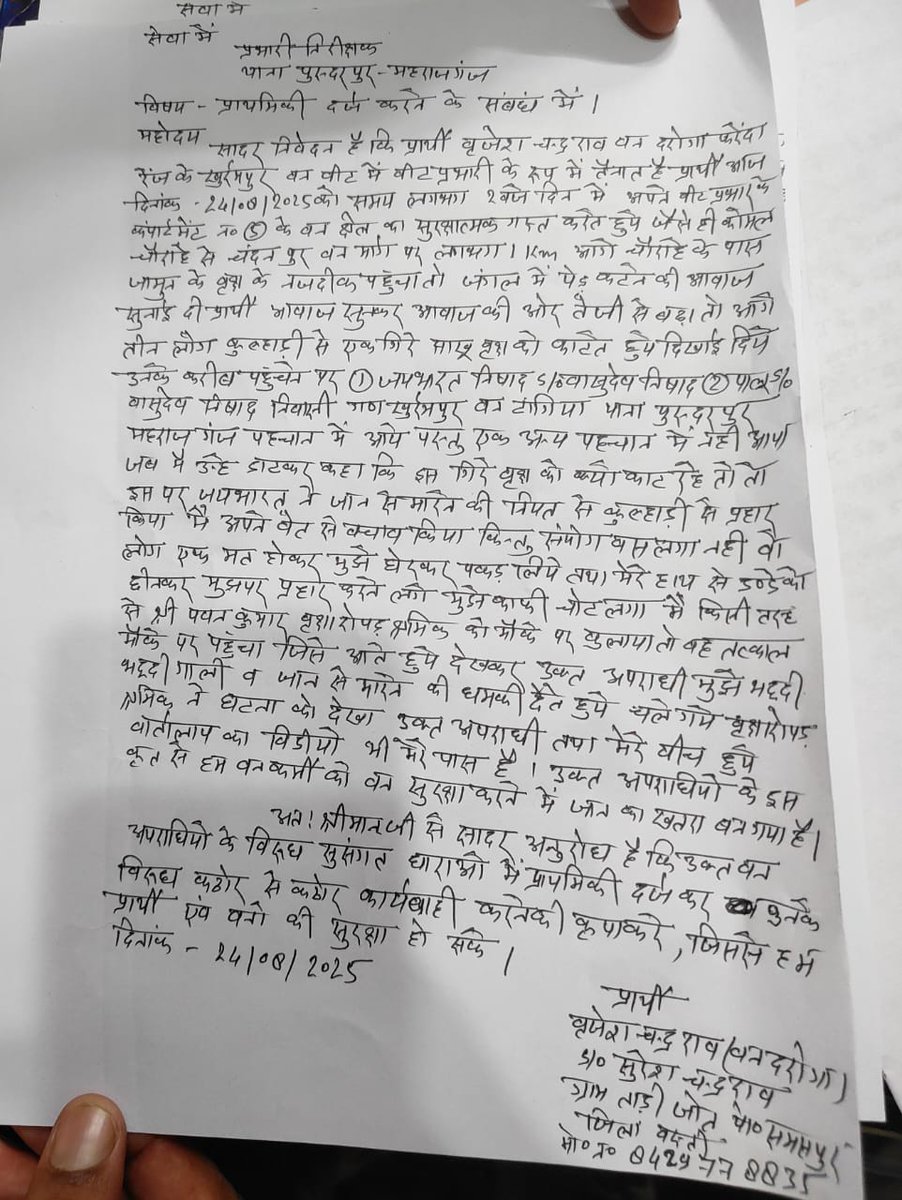 सेवा में
सेवा में
प्रभारी निरीक्षक
थाना पुरन्दरपुर-महराजगंज
विषय - प्राथमिकी दर्ज करने के संबंध में।
महोदय
सादर निवेदन है कि प्रार्थी बृजेश चन्द्र राव वन दरोगा फरेंदा
रेंज के खुर्रमपुर वन बीट में बीट प्रभारी के रूप में तैनात है प्रार्थी आज
दिनांक - 24/08/2025 को समय लगभग 2 बजे दिन में अपने बीट प्रभार के
कंपार्टमेंट न० (5) के वन क्षेत्र का सुरक्षात्मक गस्त करते हुये जैसे ही कोमल
चौराहे से चंदन पुर वन मार्ग पर लगभग 1 Km आगे चौराहे के पास
जामुन के वृक्ष के नजदीक पहुंचा तो जंगल में पेड़ कटने की आवाज
सुनाई दी प्रार्थी आवाज सुनकर आवाज की ओर तेजी से बढ़ा तो आगे
तीन लोग कुल्हाड़ी से एक गिरे साखू वृक्ष को काटते हुये दिखाई दिये
उनके करीब पहुंचने पर (1) जयभारत निषाद s/o वासुदेव निषाद (2) पालन s/o
वासुदेव निषाद निवासी गण खुर्रमपुर वन टांगिया थाना पुरन्दरपुर
महराजगंज पहचान में आये परन्तु एक अन्य पहचान में नही आया
जब मै उन्हे डाटकर कहा कि इस गिरे वृक्ष को क्यो काट रहे हो तो
इस पर जयभारत ने जान से मारने की नियत से कुल्हाड़ी से प्रहार
किया मैं अपने बेंत से बचाव किया किन्तु संयोग बस लगा नही वो
लोग एक मत होकर मुझे घेरकर पकड़ लिये तथा मेरे हाथ से डण्डे को
छीनकर मुझपर प्रहार करने लगे मुझे काफी चोट लगा मैं किसी तरह
से श्री पवन कुमार वृक्षारोपड़ श्रमिक को मौके पर बुलाया तो वह तत्काल
मौके पर पहुंचा जिसे आते हुये देखकर उक्त अपराधी मुझे भद्दी
भद्दी गाली व जान से मारने की धमकी देते हुये चले गये वृक्षारोपड़
श्रमिक ने घटना को देखा उक्त अपराधी तथा मेरे बीच हुये
वार्तालाप का विडीयो भी मेरे पास है। उक्त अपराधियो के इस
कृत से हम वनकर्मी को वन सुरक्षा करने में जान का खतरा बन गया है।
अतः श्रीमान जी से सादर अनुरोध है कि उक्त वन
अपराधियो के विरूध सुसंगत धाराओ में प्राथमिकी दर्ज कर उनके
विरूध कठोर से कठोर कार्यवाही करने की कृपा करे, जिससे हम
प्रार्थी एवं वनो की सुरक्षा हो सके।
दिनांक - 24/08/2025
प्रार्थी
बृजेश चन्द्र राव (वन दरोगा)
s/o सुरेश चन्द्र राव
ग्राम ताड़ी जोत पो०
जिला बस्ती
मो० न० 8429778835